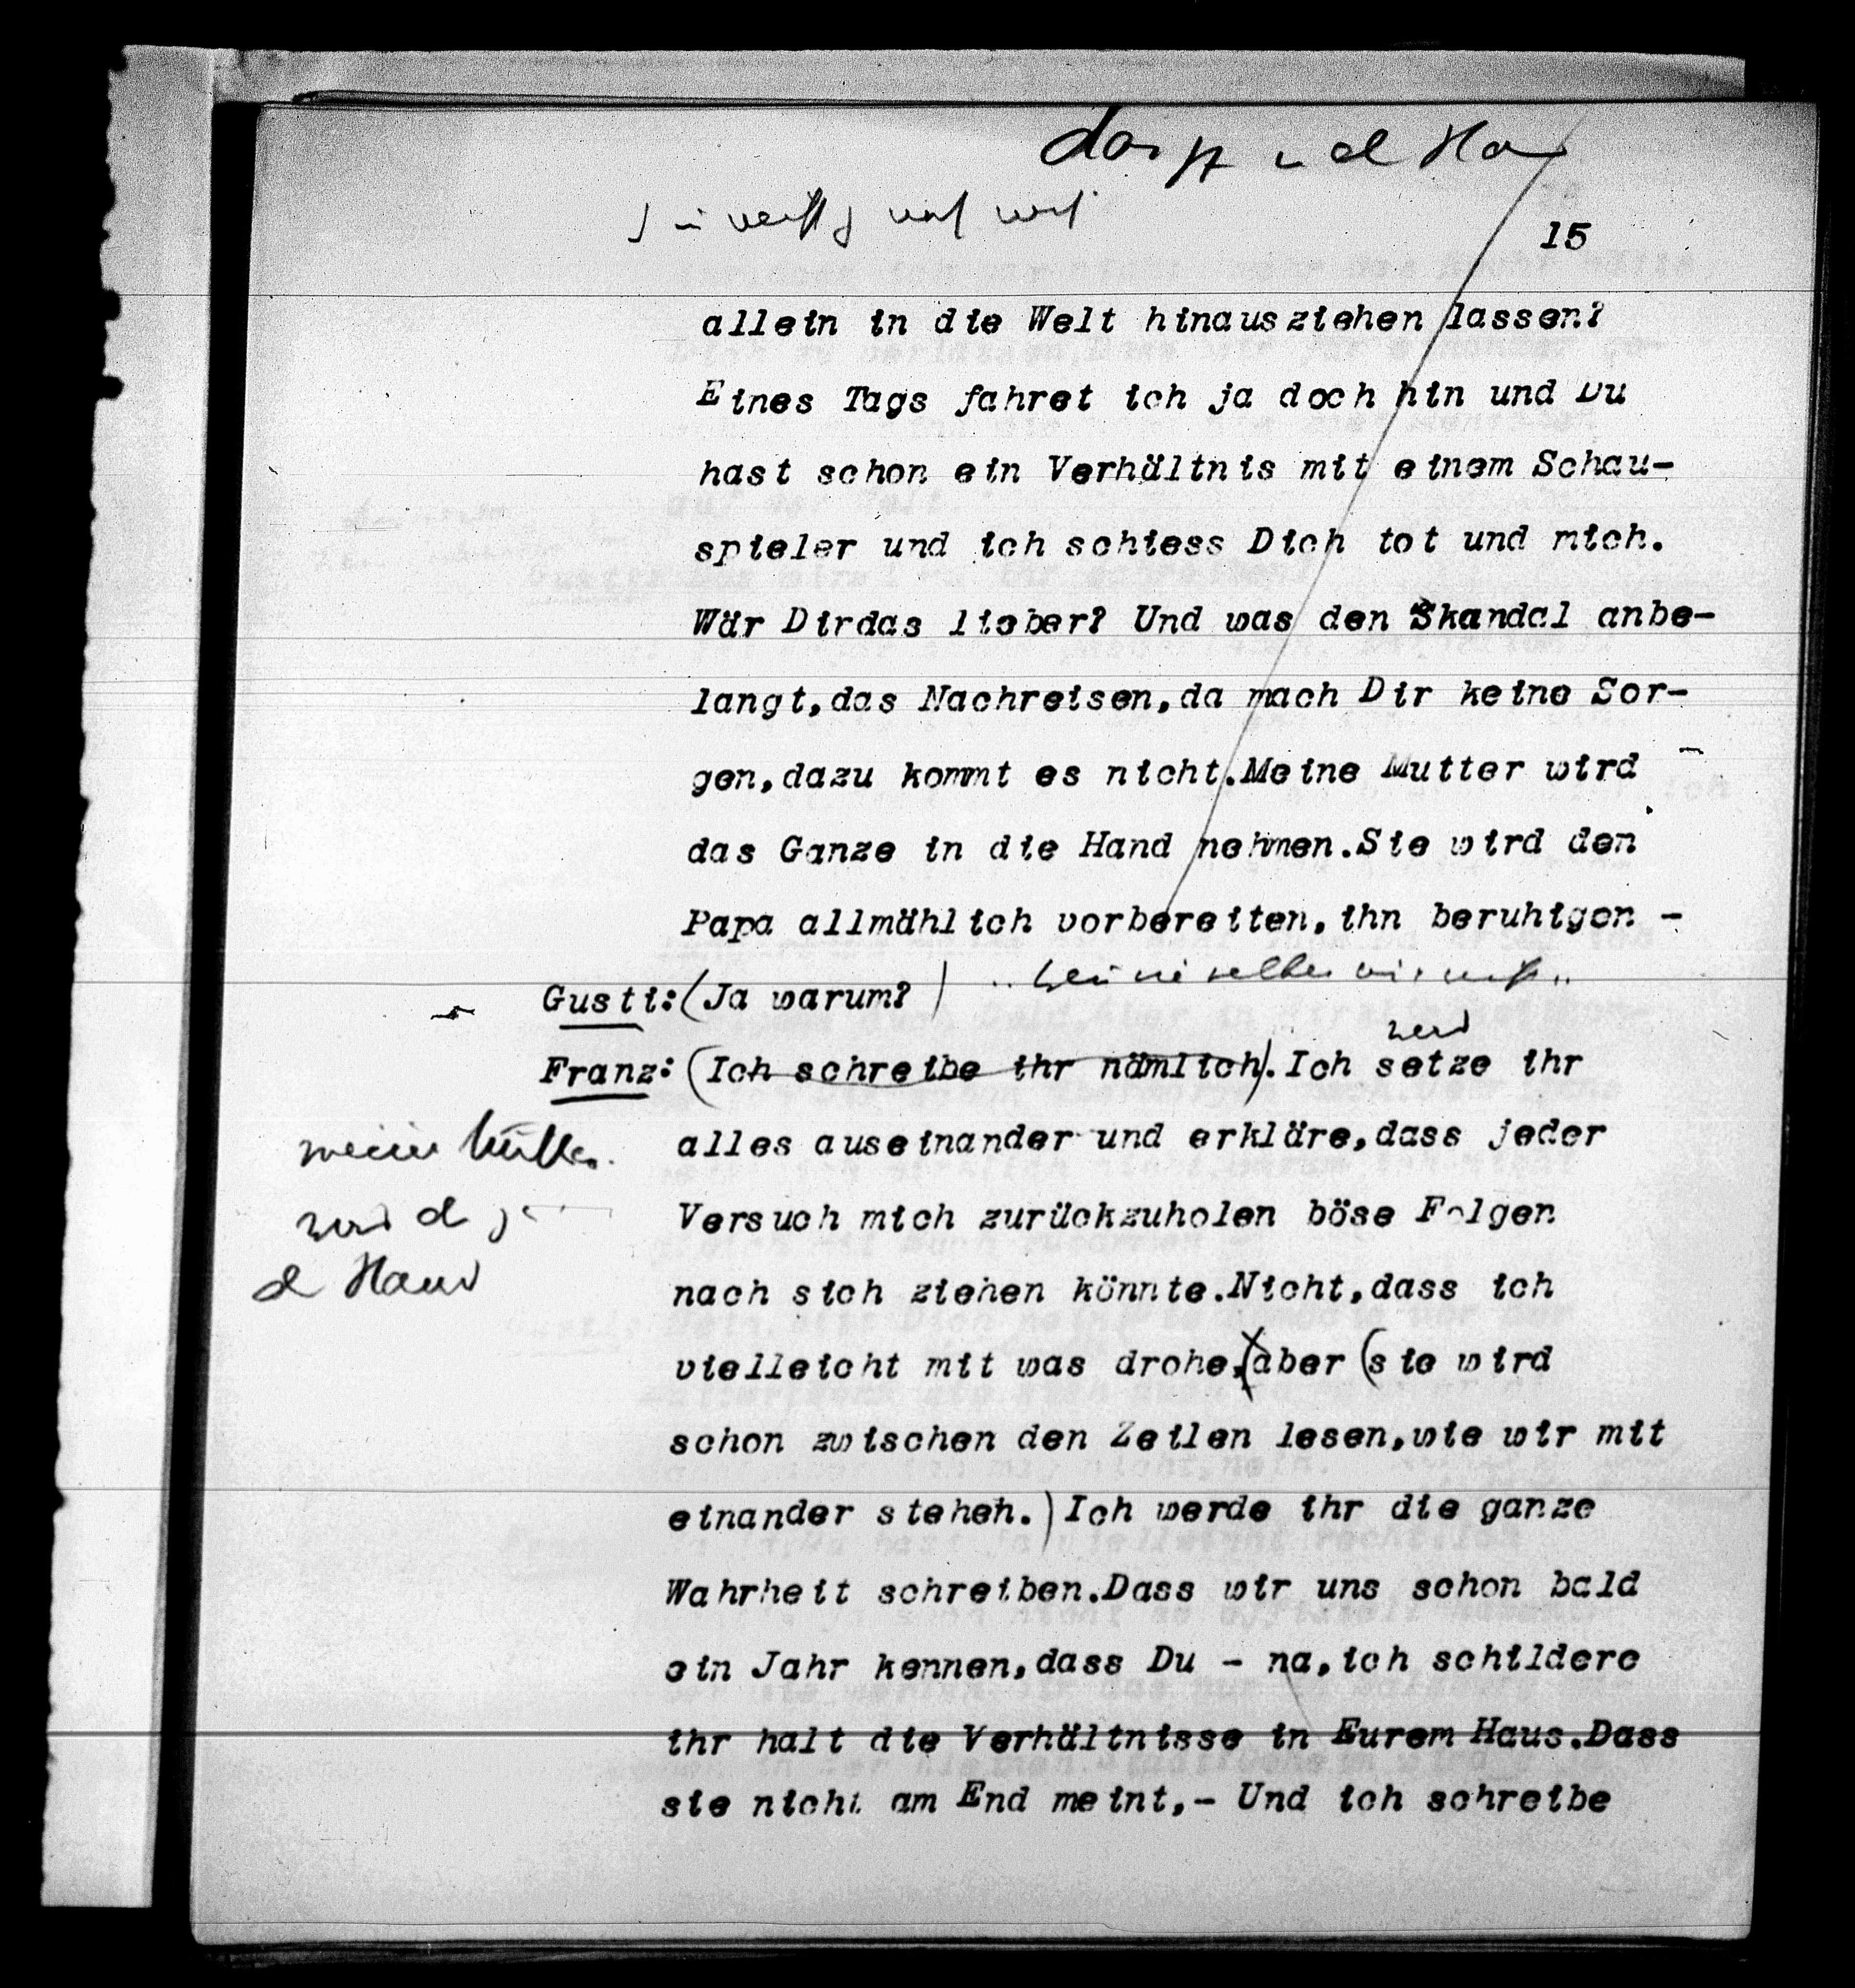 15
allein in die Welt hinausziehen lassen?
Eines Tags fahret ich ja doch hin und Du
hast schon ein Verhältnis mit einem Schau-
spieler und ich schiess Dich tot und mich.
Wär Dirdas lieber? Und was den Skandal anbe-
langt,das Nachreisen,da mach Dir keine Sor-
gen,dazu kommt es nicht.Meine Mutter wird
das Ganze in die Hand nehmen.Sie wird den
Papa allmählich vorbereiten,ihn beruhigen -
Gusti:(Ja warum?)
werd
Franz:(Ich schreibe ihr nämlich).Ich setze ihr
meine Mutter
alles auseinander und erkläre,dass jeder
wird d
Versuch mich zurückzuholen böse Folgen
d Hand
nach sich ziehen könnte.Nicht,dass ich
vielleicht mit was drohe,(aber (sie wird
schon zwischen den Zeilen lesen,wie wir mit
einander stehen.)Ich werde ihr die ganze
Wahrheit schreiben.Dass wir uns schon bald
ein Jahr kennen,dass Du - na,ich schildere
ihr halt die Verhältnisse in Eurem Haus.Dass
sie nicht am End meint,- Und ich schreibe